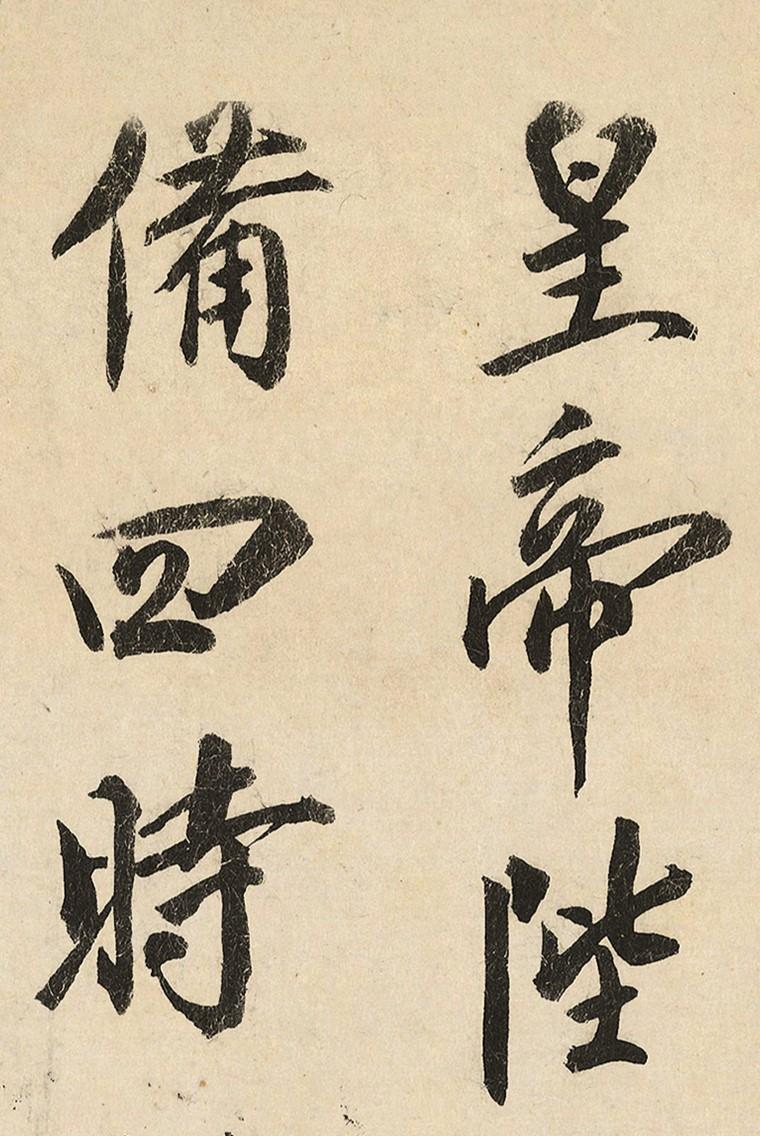 皇帝陛
備四時